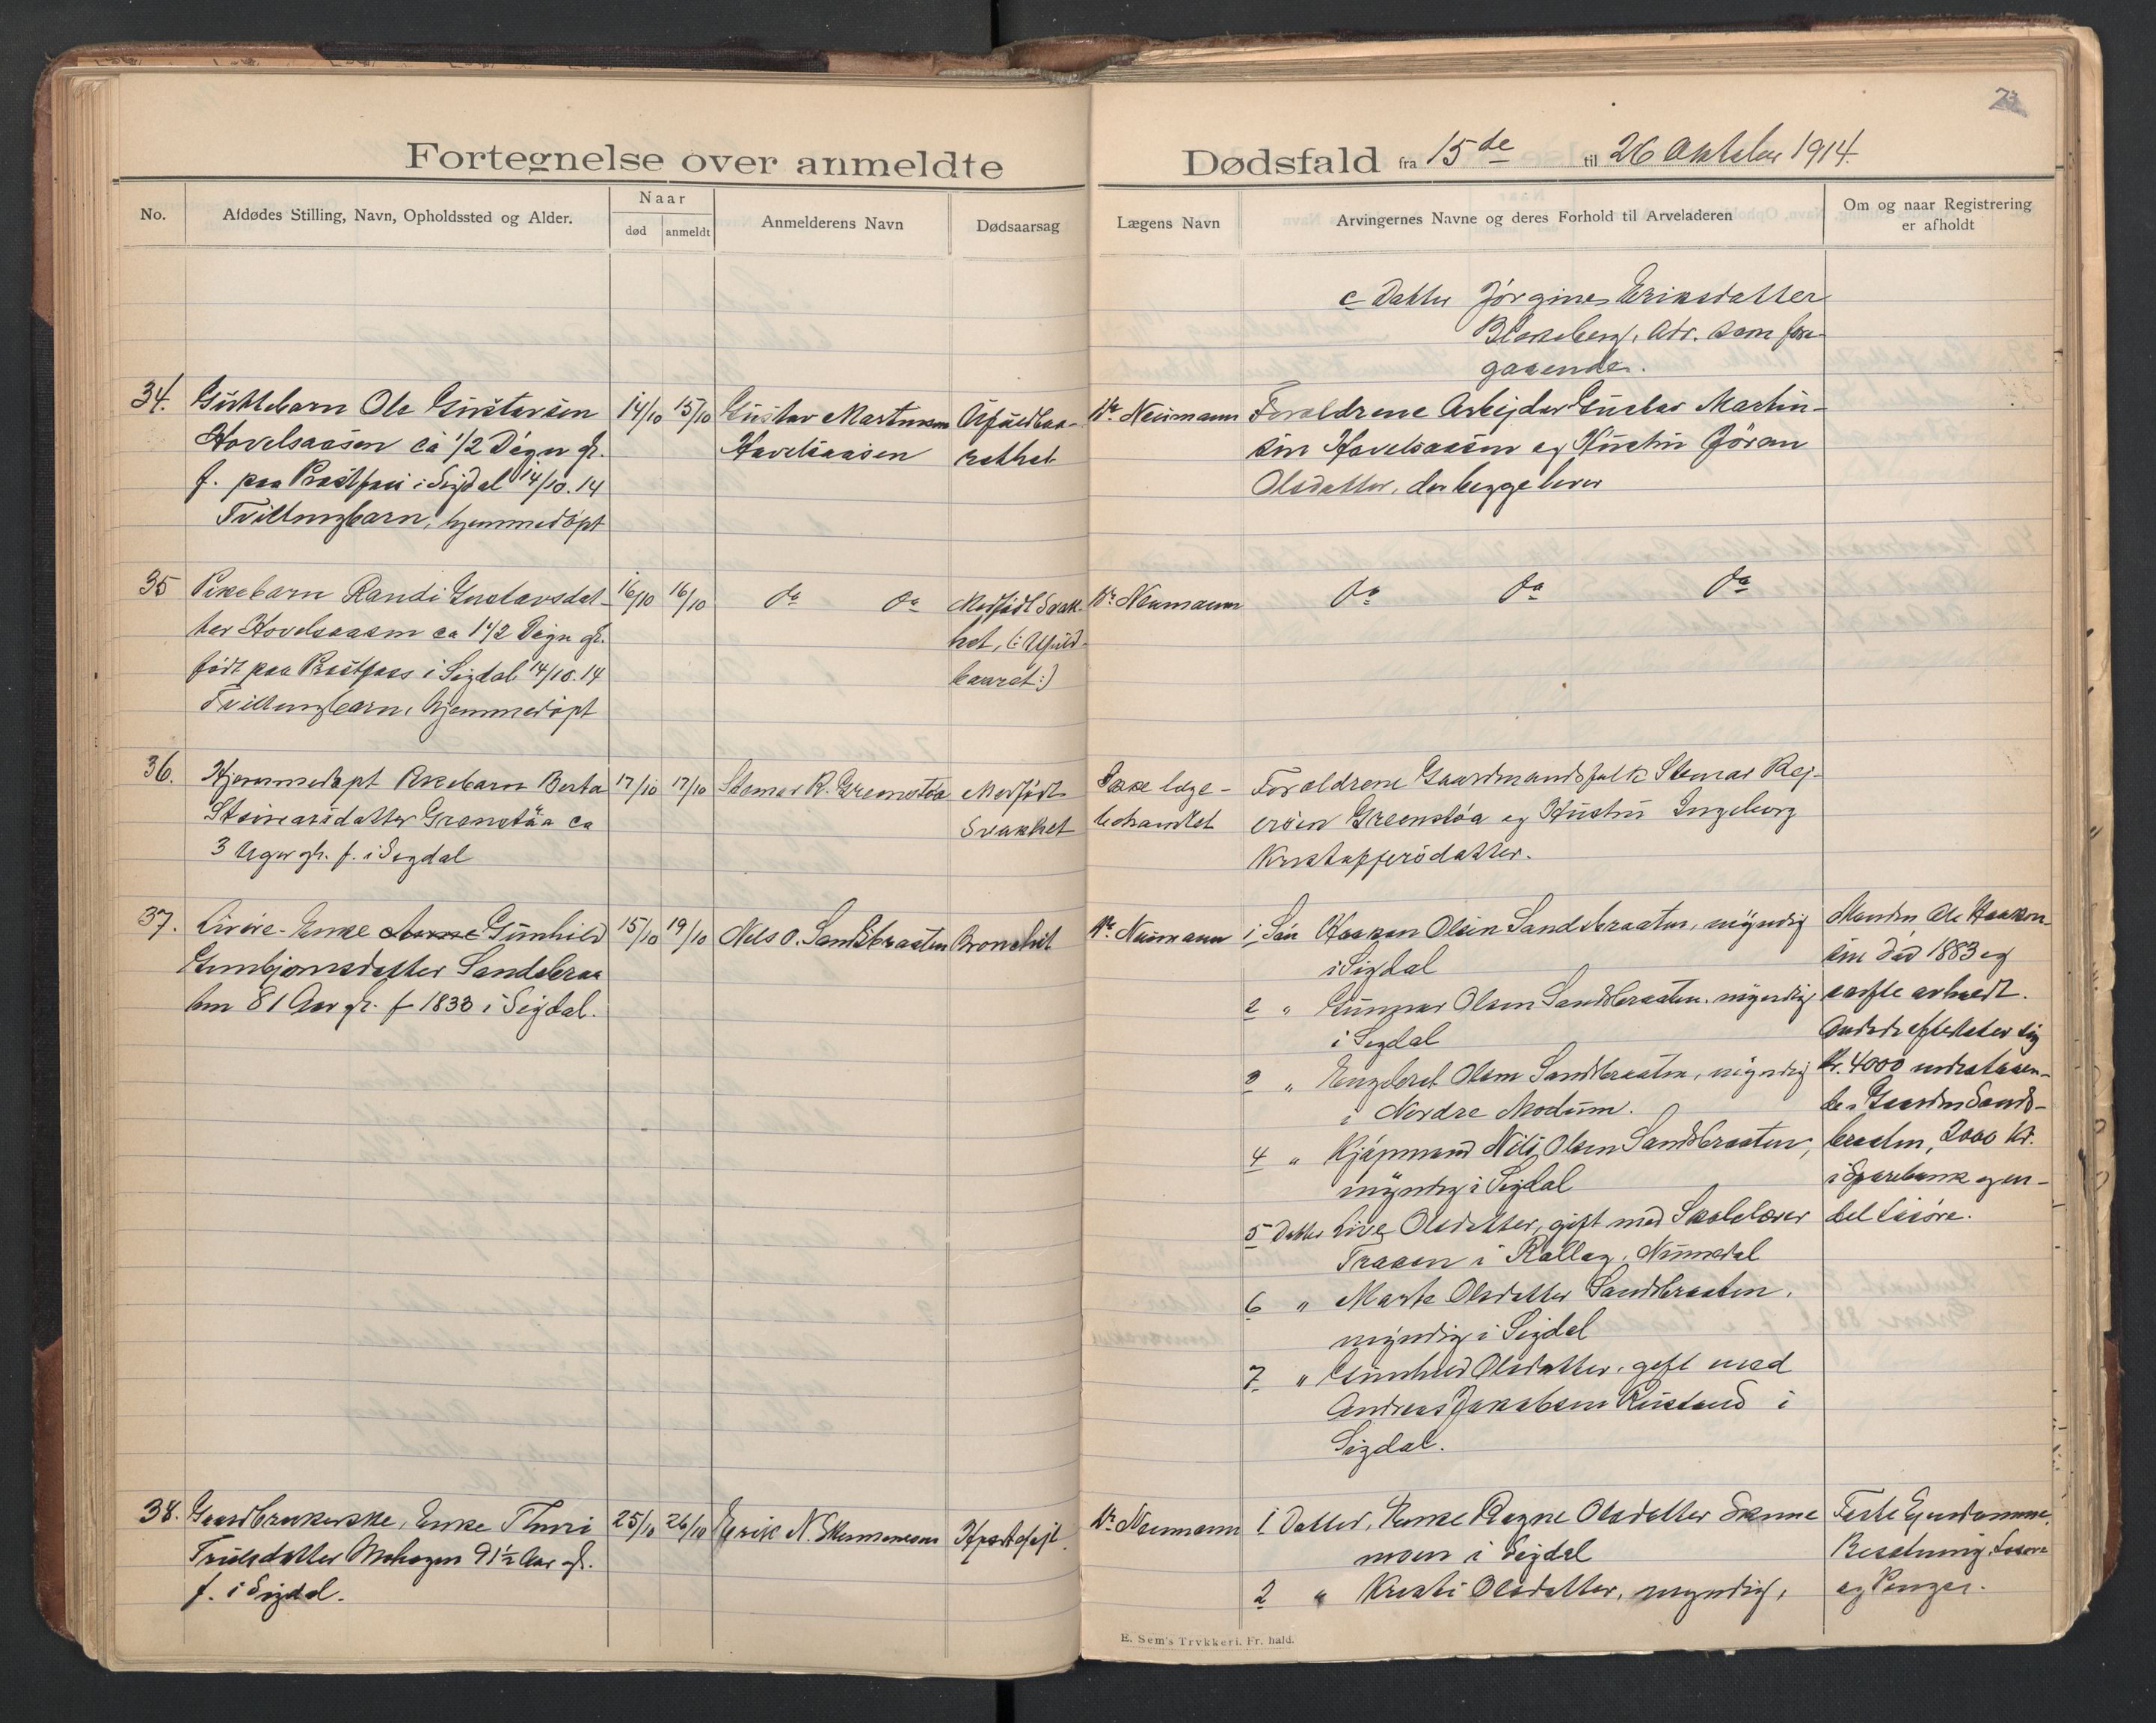 Fortegnelse over anmeldte Dødsfald fra 15de til 26 Oktober 1914.
No.
Afdødes Stilling, Navn, Opholdssted og Alder.
Naar
død
anmeldt
Anmelderens Navn
Dødsaarsag
Lægens Navn
Arvingernes Navne og deres Forhold til Arveladeren
Om og naar Registrering
er afholdt
c Datter Jørgine Eriksdatter
Adr. som fore-
gaaende.
34.
Guttebarn Ole Gustavsen
Hovelsaasen ca 1/2 Døgn gl.
f. paa Prestfoss i Sigdal 14/10.14
Tvillingbarn, hjemmedøpt
14/10
15/10
Gustav Martinsen
Hovelsaasen
Ufuldbaa-
renhet
Dr. Neumann
Forældrene Arbeider Gustav Martin-
sen Hovelsaasen og Hustru Jøran
Olsdatter, der begge lever
35
Pikebarn Randi Gustavsdat-
ter Hovelsaasen ca 1 1/2 Døgn gl.
født paa Prestfoss i Sigdal 14/10.14
Tvillingbarn, hjemmedøpt
16/10
16/10
do do
Medfødt Svak-
het, (: Ufuld-
baaret :)
Dr. Neumann
do do do
36.
Hjemmedøpt Pikebarn Berta
Steinarsdatter Grenstøa ca
3 Uger gl. f. i Sigdal
17/10
17/10
Stenar R. Grenstøa
Medfødt
Svakhet
Ikke læge-
behandlet
Forældrene Gaardmandsfolk Stenar Rej-
ersen Grenstøa og Hustru Ingeborg
Kristoffersdatter.
37.
Livøre-Enke Gunhild
Gunbjørnsdatter Sandsbraa
ten 81 Aar gl. f 1833 i Sigdal.
15/10
19/10
Nils O. Sandsbraaten
Bronchit
Dr. Neumann
1 Søn Haakon Olsen Sandsbraaten, myndig
i Sigdal
2 " Gunnar Olsen Sandsbraaten, myndig
i Sigdal
3 " Engebret Olsen Sandsbraaten, myndig
i Nordre Modum.
4 " Kjøpmand Nils Olsen Sandsbraaten,
myndig i Sigdal
5 Datter Live Olsdatter, gift med Skolelærer
Traaen i Rollag, Numedal
6 " Marte Olsdatter Sandsbraaten,
myndig i Sigdal
7 " Gunhild Olsdatter, gift med
Andreas Jakobsen Rustand i
Sigdal.
Manden Ole Haakon-
sen død 1883 og
skifte avholdt.
efterlater sig
Kr. 4000 indestaaen-
de i Gaarden Sands-
braaten, 2000 Kr.
i Sparebank og en-
del Løsøre.
38.
Gaardbrukerske, Enke Thuri
Trulsdatter Mehagen 91 1/2 Aar gl.
f. i Sigdal.
25/10
26/10
Erik N. Skinnesmoen
Dr. Neumann
1 Datter, Enke Ragne Olsdatter Skinnes
moen i Sigdal
2 " Kristi Olsdatter, myndig,
Faste Eiendomme,
Besetning, Løsøre
og Penger.
E. Sem's Trykkeri. Fr. hald.